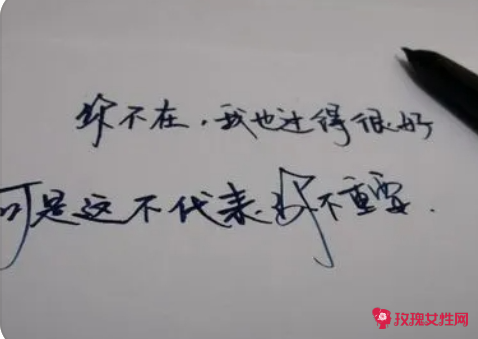 你不在，我也过得很好
可是这不代表你不重要.
玫瑰女性网